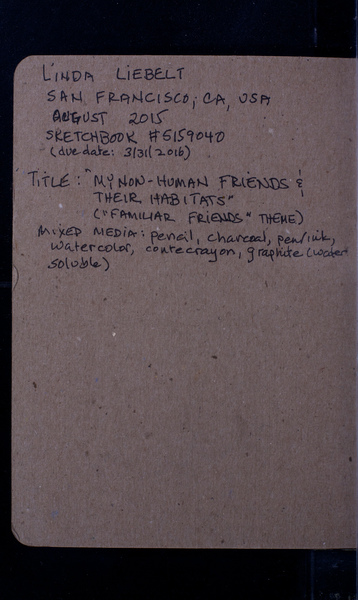 LINDA LIEBELT
SAN FRANCISCO, CA, USA
AUGUST 2015
SKETCHBOOK #S159040
(due date: 3/31/2016)
TITLE: "MY NON-HUMAN FRIENDS &
THEIR HABITATS"
("FAMILIAR FRIENDS" THEME)
MIXED MEDIA: pencil, charcoal, pen/ink,
watercolor, conte crayon, graphite (water
soluble)